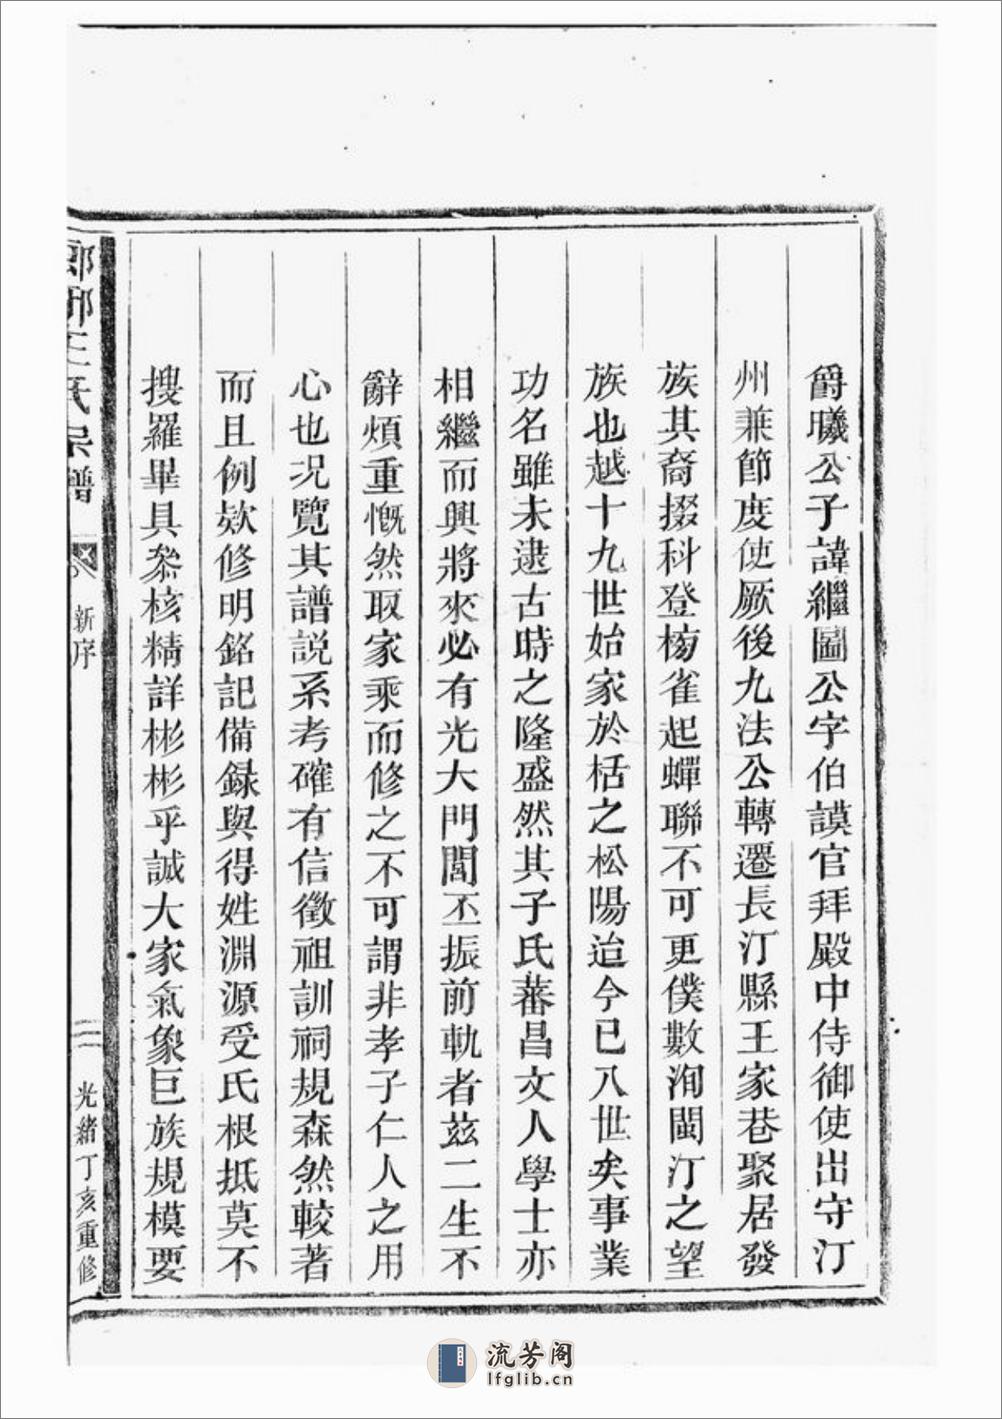 爵曦公子諱繼圖公字伯謨官拜殿中侍御使出守汀
州兼節度使厥後九法公轉遷長汀縣王家巷聚居發
族其裔掇科登樹雀起蟬聯不可更僕數洵閩汀之望
族也越十九世始家於栝之松陽迨今已八世矣事業
功名雖未逮古時之隆盛然其子氏蕃昌文人學士亦
相繼而興將來必有光大門閭丕振前軌者茲二生不
辭煩重慨然取家乘而修之不可謂非孝子仁人之用
心也況覽其譜說系考確有信徵祖訓祠規森然較著
而且例欵修明銘記備録與得姓淵源受氏根抵莫不
搜羅畢具叅核精詳彬彬乎誠大家氣象巨族規模要
瑯琊王氏宗譜 新序 二 光緒丁亥重修
流芳阁
lfglib.cn